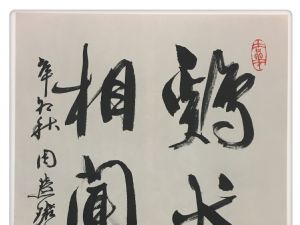 鸡犬
相闻
辛卯秋周慧珺